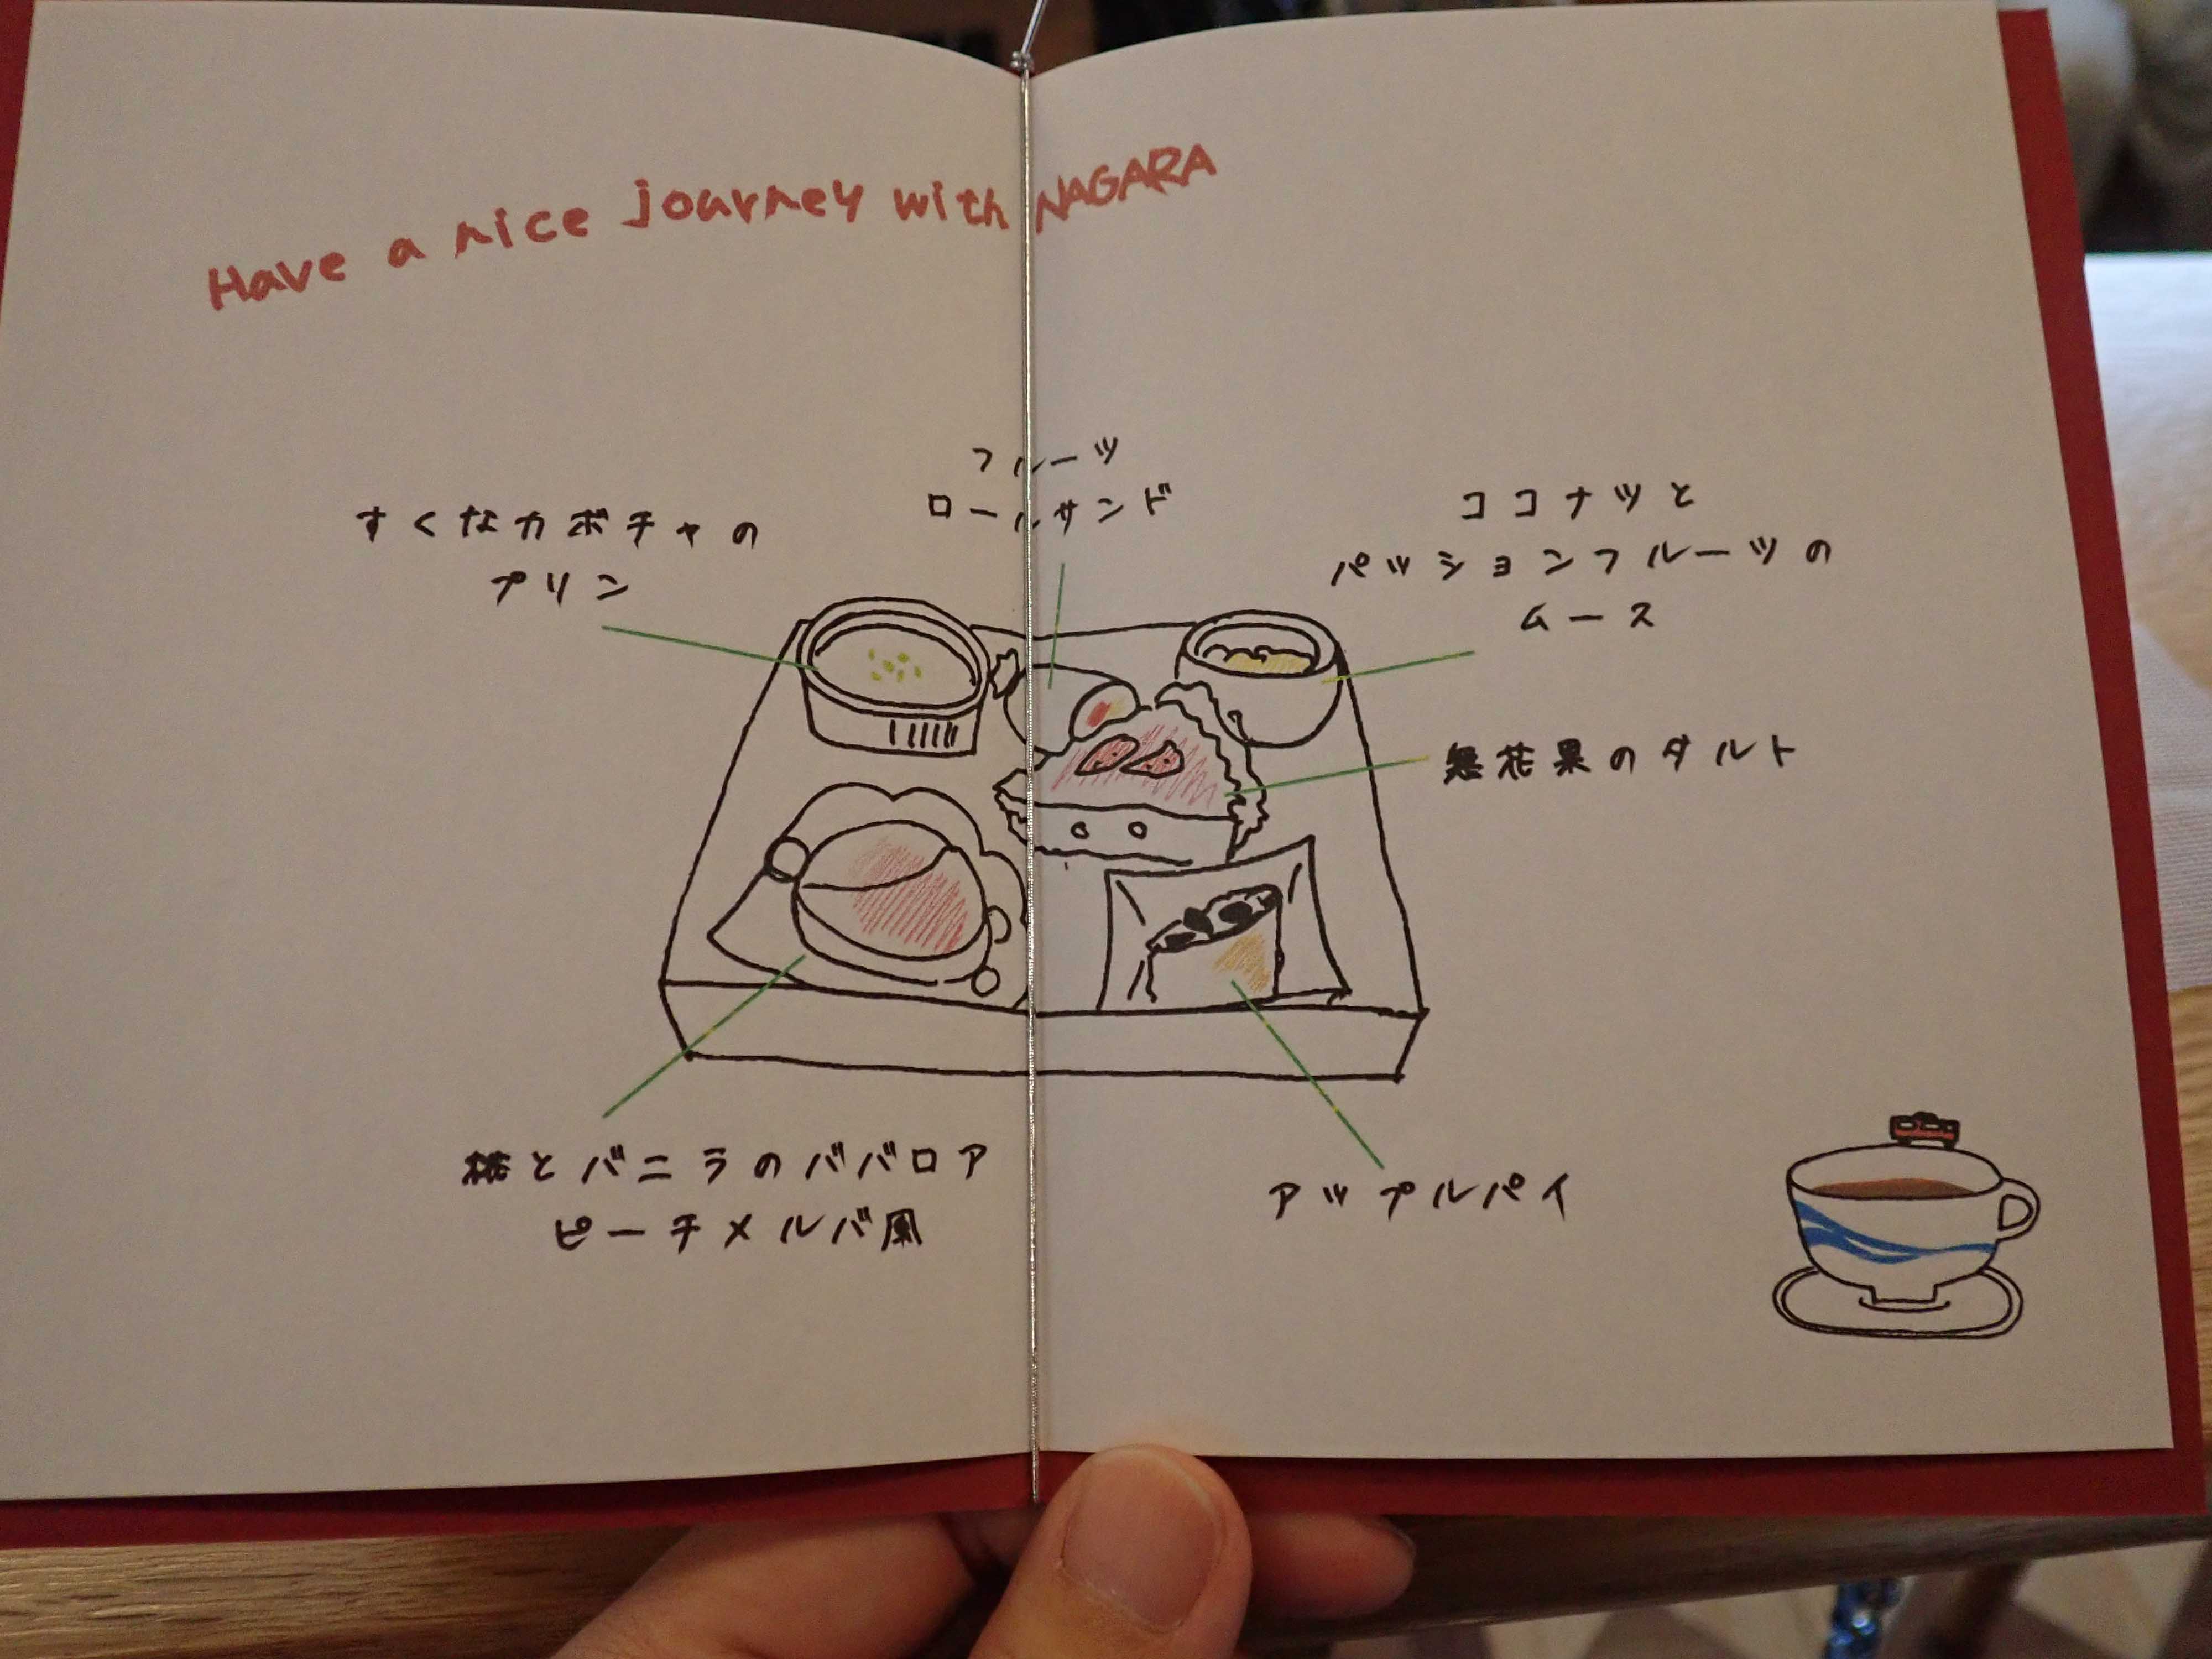 Have a nice journey with NAGARA
フルーツ
ロールサンド
すくなカボチャの
プリン
ココナツと
パッションフルーツの
ムース
無花果のタルト
桃とバニラのババロア
ピーチメルバ風
アップルパイ